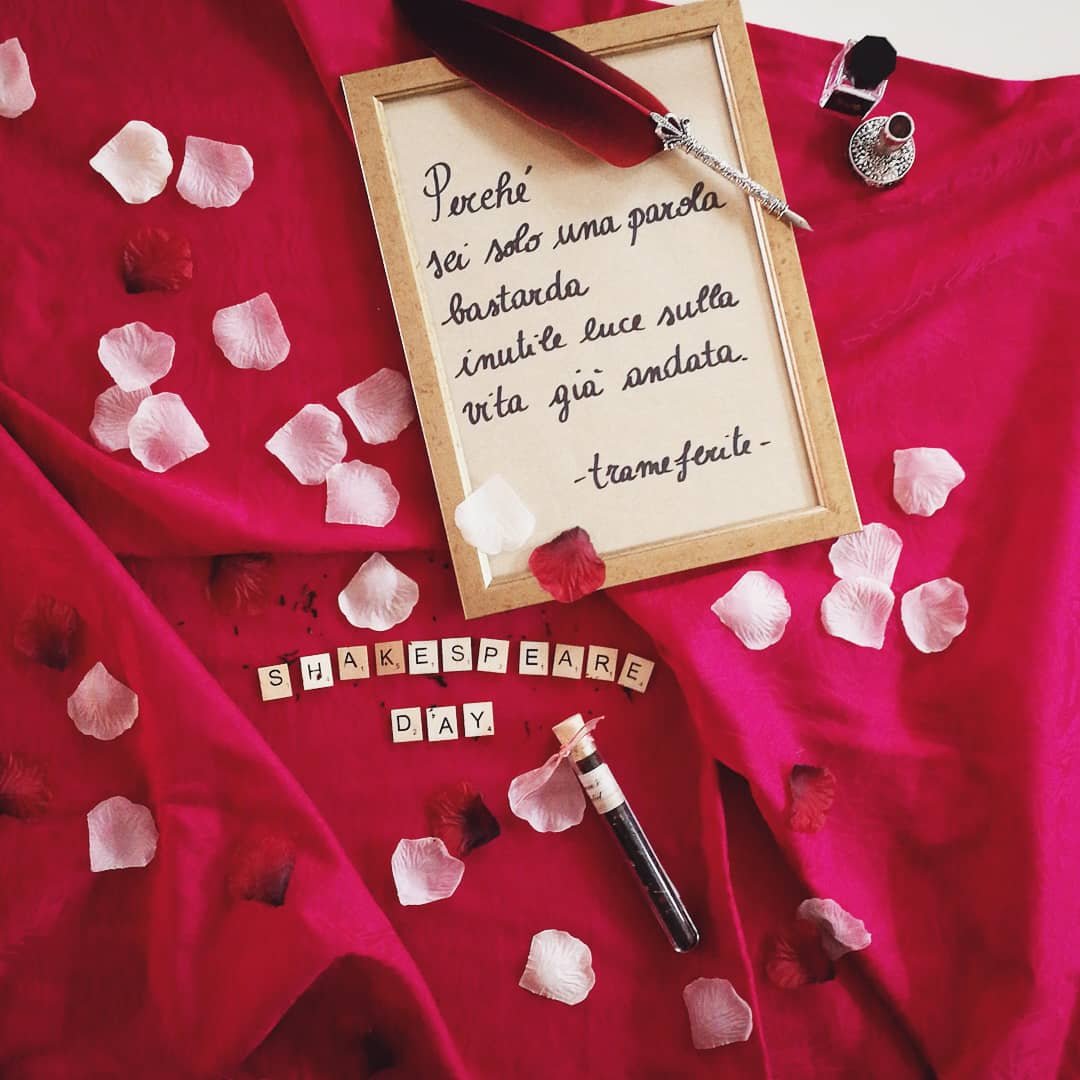 Perché
sei solo una parola
bastarda
inutile luce sulla
vita già andata.
-trameferite-
SHAKESPEARE
DAY